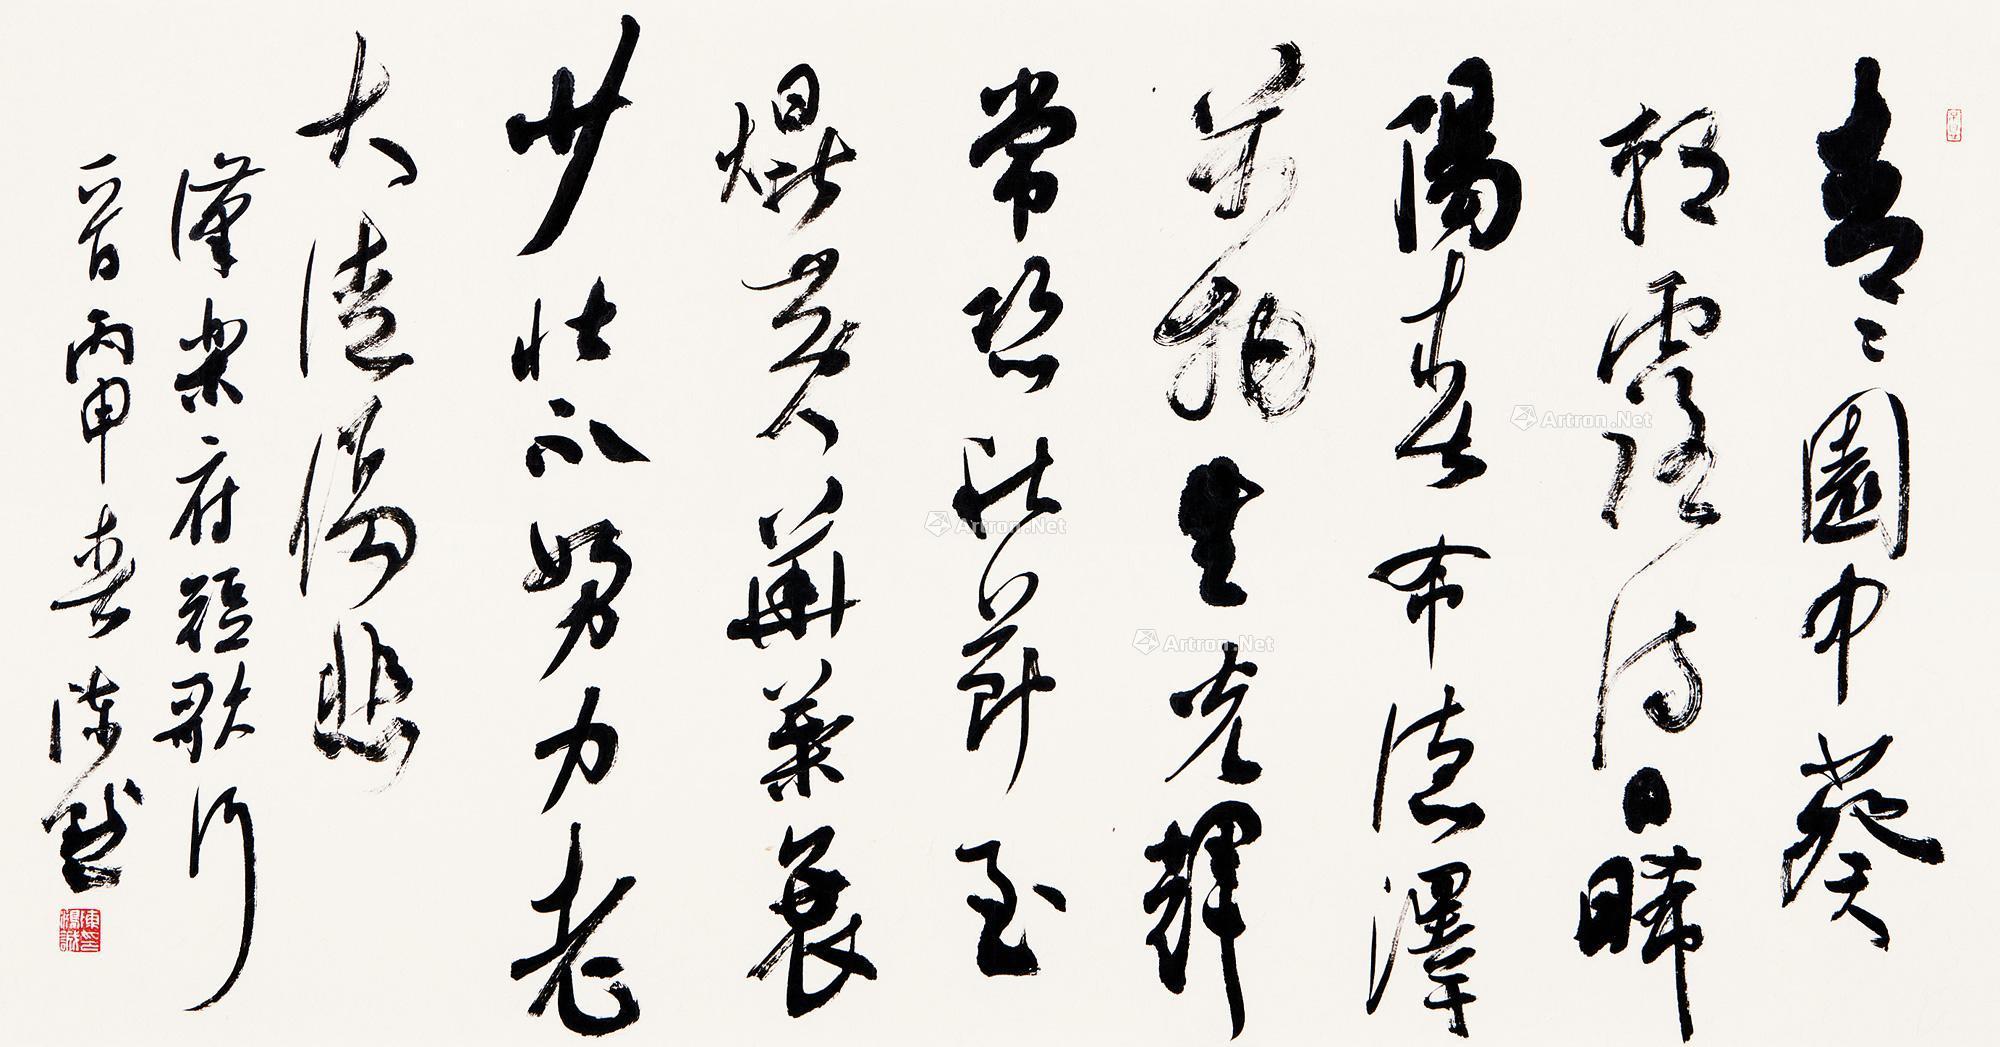 青〻園中葵
朝露待日晞
陽春布德澤
萬物生光輝
常恐秋節至
焜黄華葉衰
少壮不努力老
大徒傷悲
漢楽府短歌行
一首丙申春陳
Artron.Net
Artron.Net
Artron.Net